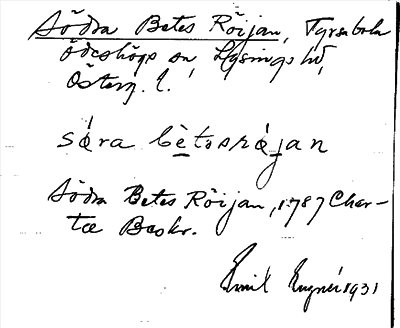 Södra Betes Röijan, Tyrsabola
Ödeshögs sn, Lysings hd,
Österg. l.
söra bètösröjan
Södra Betes Röijan, 1787 Char-
tæ Beskr.
Emil Eugnér 1931